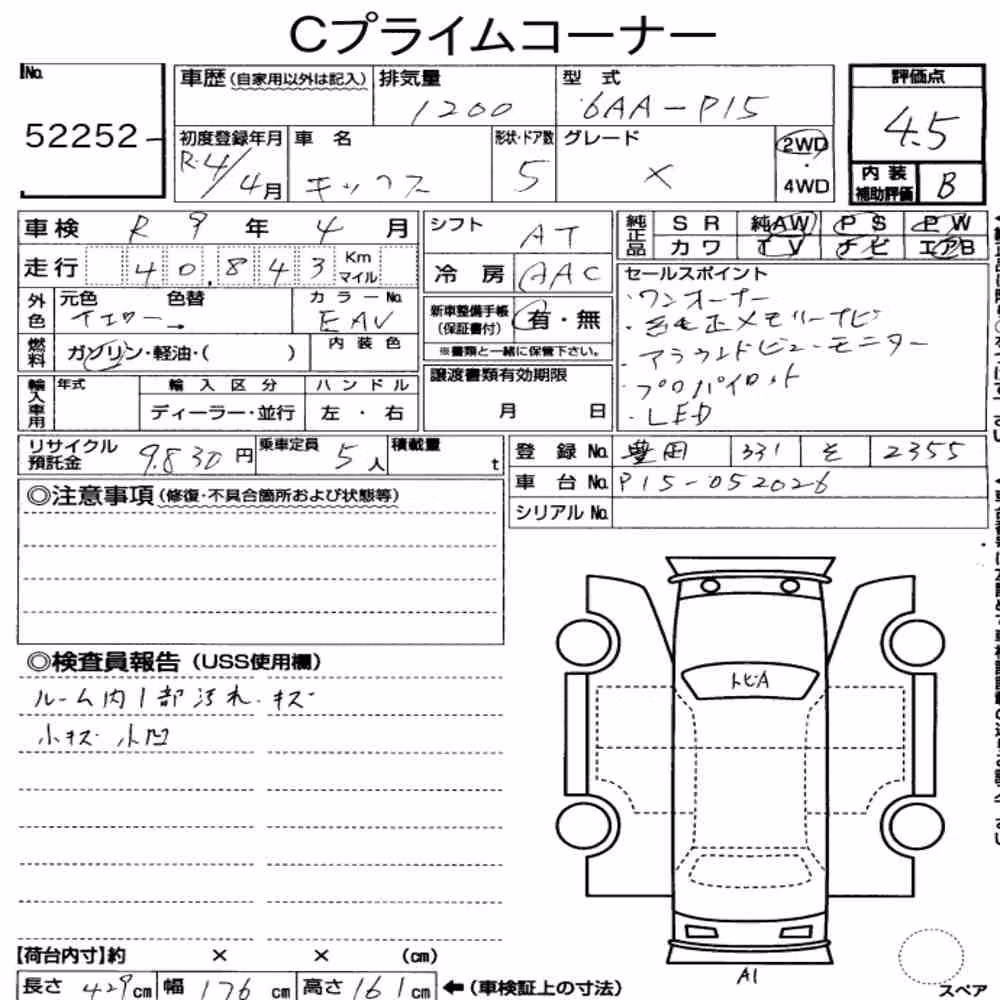 Cプライムコーナー
No.
52252
車歴(自家用以外は記入)
排気量
1200
型 式
6AA-P15
評価点
4.5
初度登録年月
R.4/4月
車 名
キックス
形状・ドア数
5
グレード
X
2WD
・
4WD
内装
補助評価
B
車検 R 9 年 4 月
走行 40,843 Km
マイル
シフト
AT
冷 房 AAC
純正品
SR 純AW PS PW
カワ TV ナビ エアB
外色
元色 色替
イエロー→
カラーNo.
EAV
燃料
ガソリン・軽油・( )
内装色
新車整備手帳
(保証書付)
有・無
※書類と一緒に保管下さい。
セールスポイント
・ワンオーナー
・純正メモリーナビ
・アラウンドビューモニター
・プロパイロット
・LED
輸入車用
年式
輸入区分
ディーラー・並行
ハンドル
左・右
譲渡書類有効期限
月 日
リサイクル
預託金
9.830円
乗車定員
5人
積載量
t
登 録 No. 豊岡 331 そ 2355
車 台 No. P15-052026
シリアル No.
◎注意事項(修復・不具合箇所および状態等)
◎検査員報告(USS使用欄)
ルーム内1部汚れ.キズ
小キズ 小凹
トビA
A1
スペア
【荷台内寸】約 × × (cm)
長さ 429cm 幅 176cm 高さ 161cm ←(車検証上の寸法)